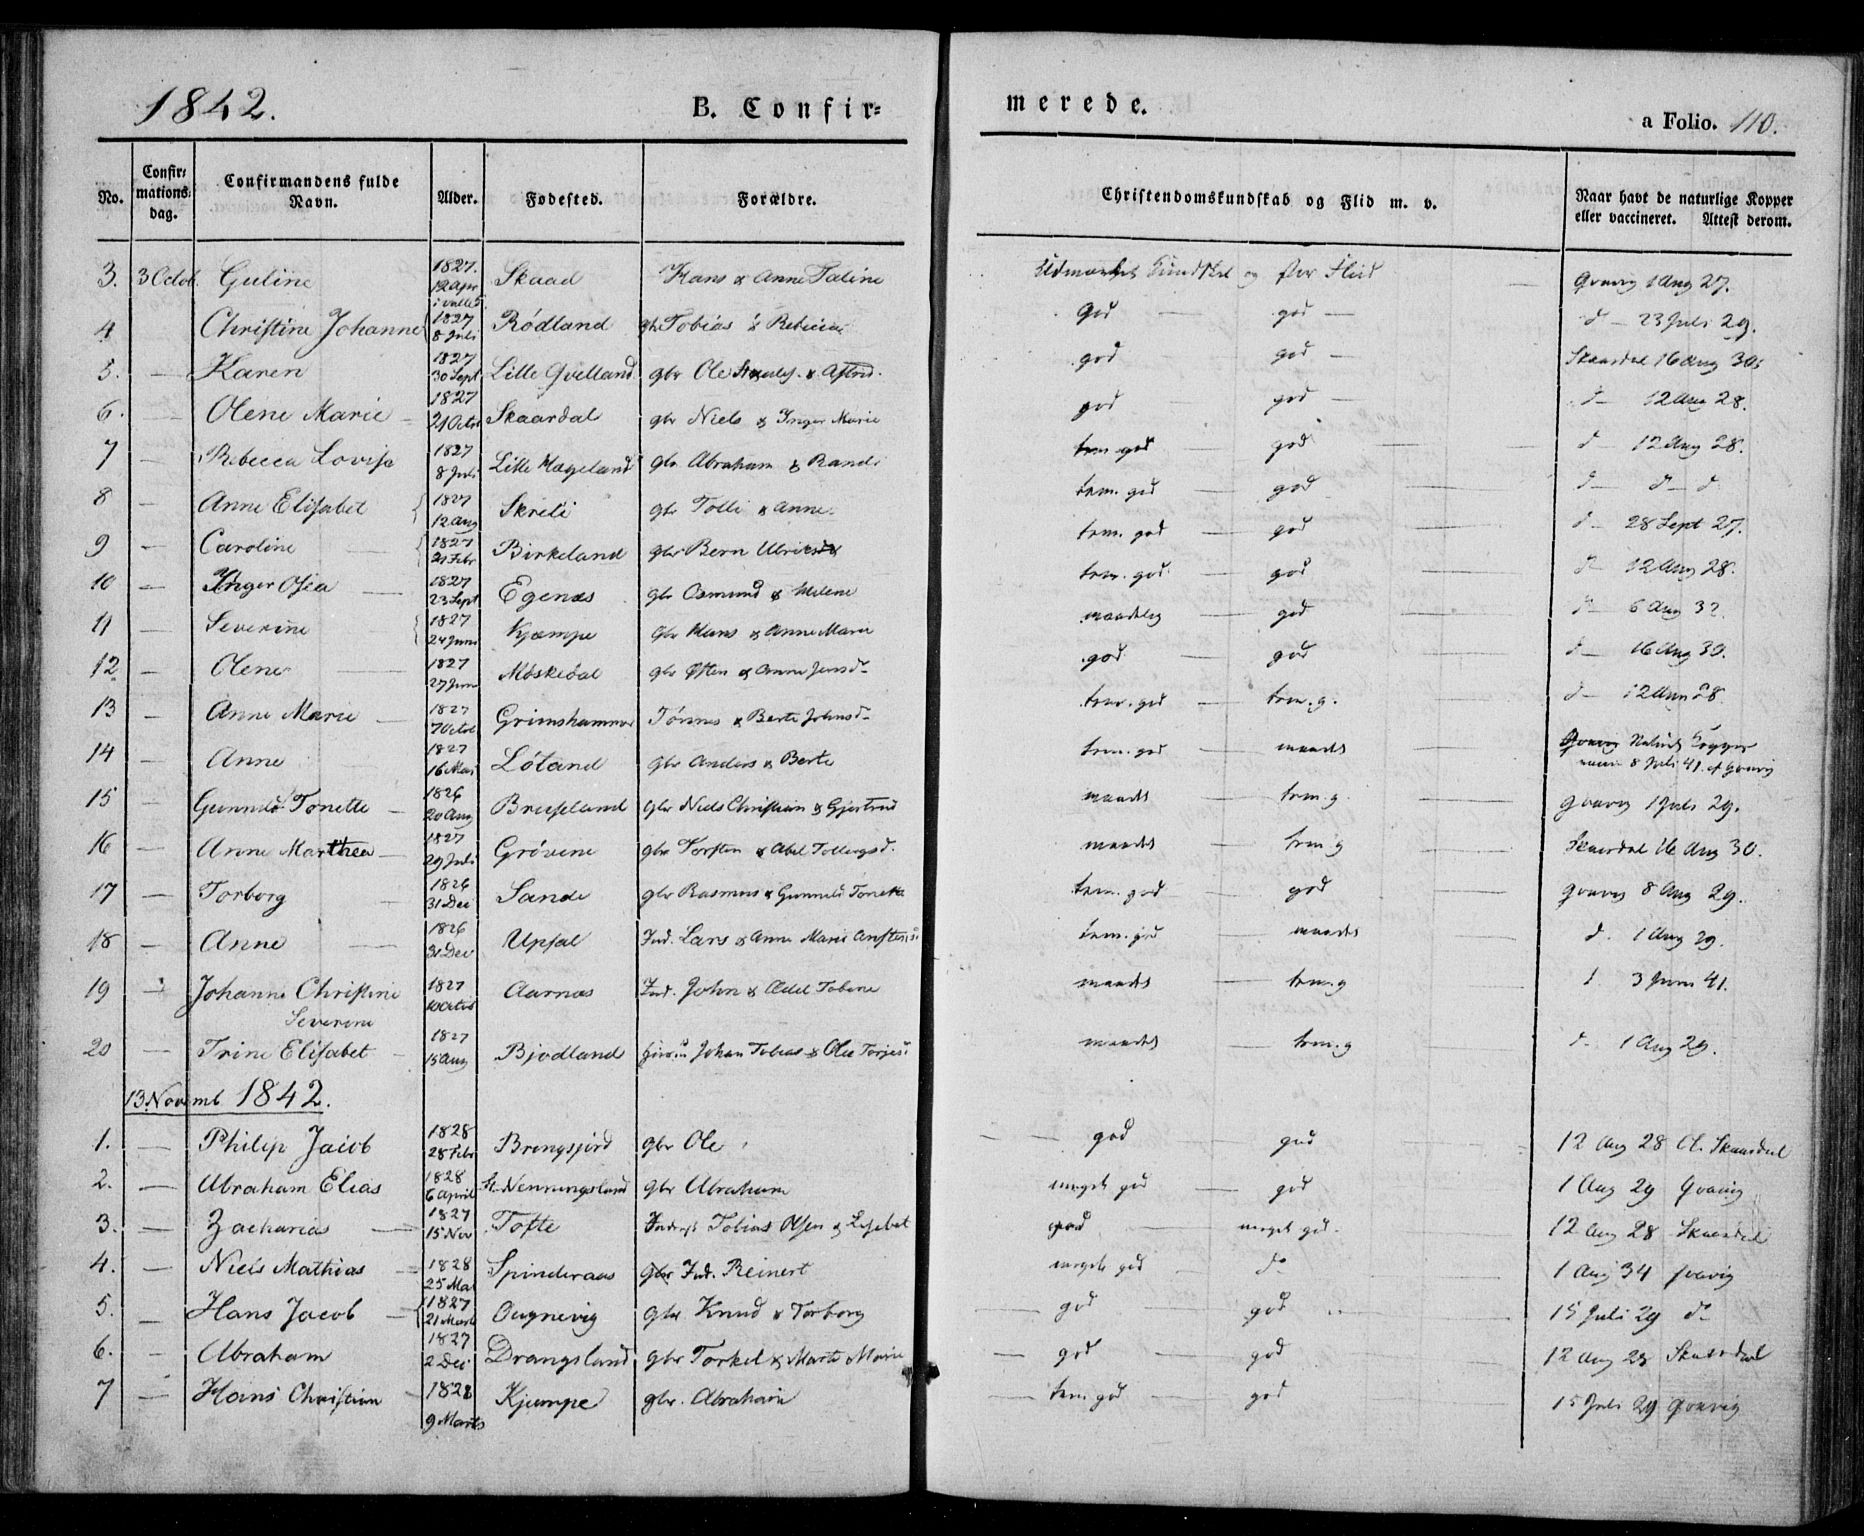 1842.
B. Confir=
merede.
a Folio. 110.
No.
Confir= mations= dag.
Confirmandens fulde Navn.
Alder.
Fødested.
Forældre.
Christendomskundskab og Flid m. v.
Naar havt de naturlige Kopper eller vaccineret. Attest derom.
3. 3 Octob. Guline 1827. 12 Apr Skaad Hans & Anne Taline Udmærket Kundskab og stor Flid 1 Aug 27.
4 Christine Johanne 1827 8 Juli Rødland gbr Tobias & Rebecca God — god — d — 23 Juli 29.
5. — Karen 1827 30 Sept Lille Qvelland gbr Ole & Astrid. god god — Skaardal 16 Aug 30
6. — Olene Marie 1827 21 Octob Skaardal gbr Niels & Inger Marie god god — d — 12 Aug 28.
7 — Rebecca Lovise 1827 8 Juli Lille Hageland gbr Abraham & Randi tem god — god d 12 Aug 28.
8 — Anne Elisabet 1827 12 Aug Skreli gbr Tolli & Anne tem. god — god d — d — d
9 — Caroline — 1827 21 Febr Birkeland gbr Bern Ulriksd tem. god — god d — 28 Sept 27.
10 — Inger Osea — 1827 23 Sept Egenæs gbr Osmund & Helene tem. god — god d — 12 Aug 28.
11 — Severine 1827 24 Juni Kjæmpe gbr Hans & Anne Marie maadelig — god d — 6 Aug 32
12 — Olene — 1827 27 Juni Møskedal gbr Østen & Anne Jensd god — god d — 16 Aug 30.
13 — Anne Marie — 1827 7 Octob Grimshammer Tønnes & Berte Johnsd tem. god — tem. g. d — 12 Aug 28
14 — Anne 1827 16 Mai Løland gbr Anders & Berte tem. god — maadel Naturl Kopper 8 Juli 41. af
15 — Gunnild Tonette — 1826 20 Aug Bruseland gbr Niels Christian & Gjertrud maadel — tem. g 1 Juli 29.
16 — Anne Marthea — 1827 29 Juli Grøvene gbr Torsten & Abel Tollagsd. maadel — tem. g Skaardal 16 Aug 30.
17 — Torborg 1826 31 Dec Sande gbr Rasmus & Gunneld Tonette tem. god — god 8 Aug 29.
18 — Anne — 1826 31 Dec Upsal Ind. Lars & Anne Marie tem. god maadel d. 1 Aug 29.
19 Johanne Christine Severine 1827 10 Octob Aarnæs Ind. John & Adel Tobine maadel — tem. g 3 Juni 41.
20 — Trine Elisabet — 1827 15 Aug Bjodland Johan Tobias & Olee maadel — tem. g d. 1 Aug 29.
13 Novemb 1842.
1. — Philip Jacob 1828 28 Febr Bringsjord gbr Ole — — god god 12 Aug 28 Skaardal
2. — Abraham Elias 1828 6 April Nenningsland gbr Abraham meget god — god 1 Aug 29
3. — Zacharias — 1827 15 Nov Tofte Tobias Olsen & Lisebet god — meget god. 12 Aug 28 Skaardal
4. — Niels Mathias — 1828 25 Mai Spinderaas gbr Ind. Reinert meget god d 1 Aug 34
5. — Hans Jacob — 1827 21 Marts Ougnevig gbr Knud & Torborg — god god 15 Juli 29 d
6. — Abraham 1827 2 Dec Drangsland gbr Torkel & Marte Marie — god — god 12 Aug 28 Skaardal
7 — Hans Christian — 1828 9 Marts Kjæmpe gbr. Abraham — tem god — god 15 Juli 29